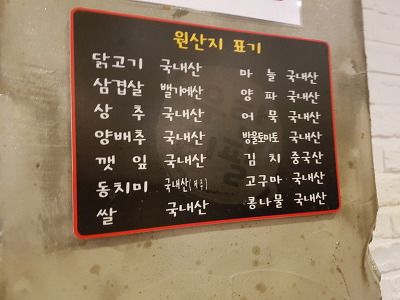 원산지 표기
닭고기 국내산
삼겹살 벨기에산
상 추 국내산
양배추 국내산
깻 잎 국내산
동치미 국내산(제품)
쌀 국내산
마 늘 국내산
양 파 국내산
어 묵 국내산
방울토마토 국내산
김 치 중국산
고구마 국내산
콩나물 국내산